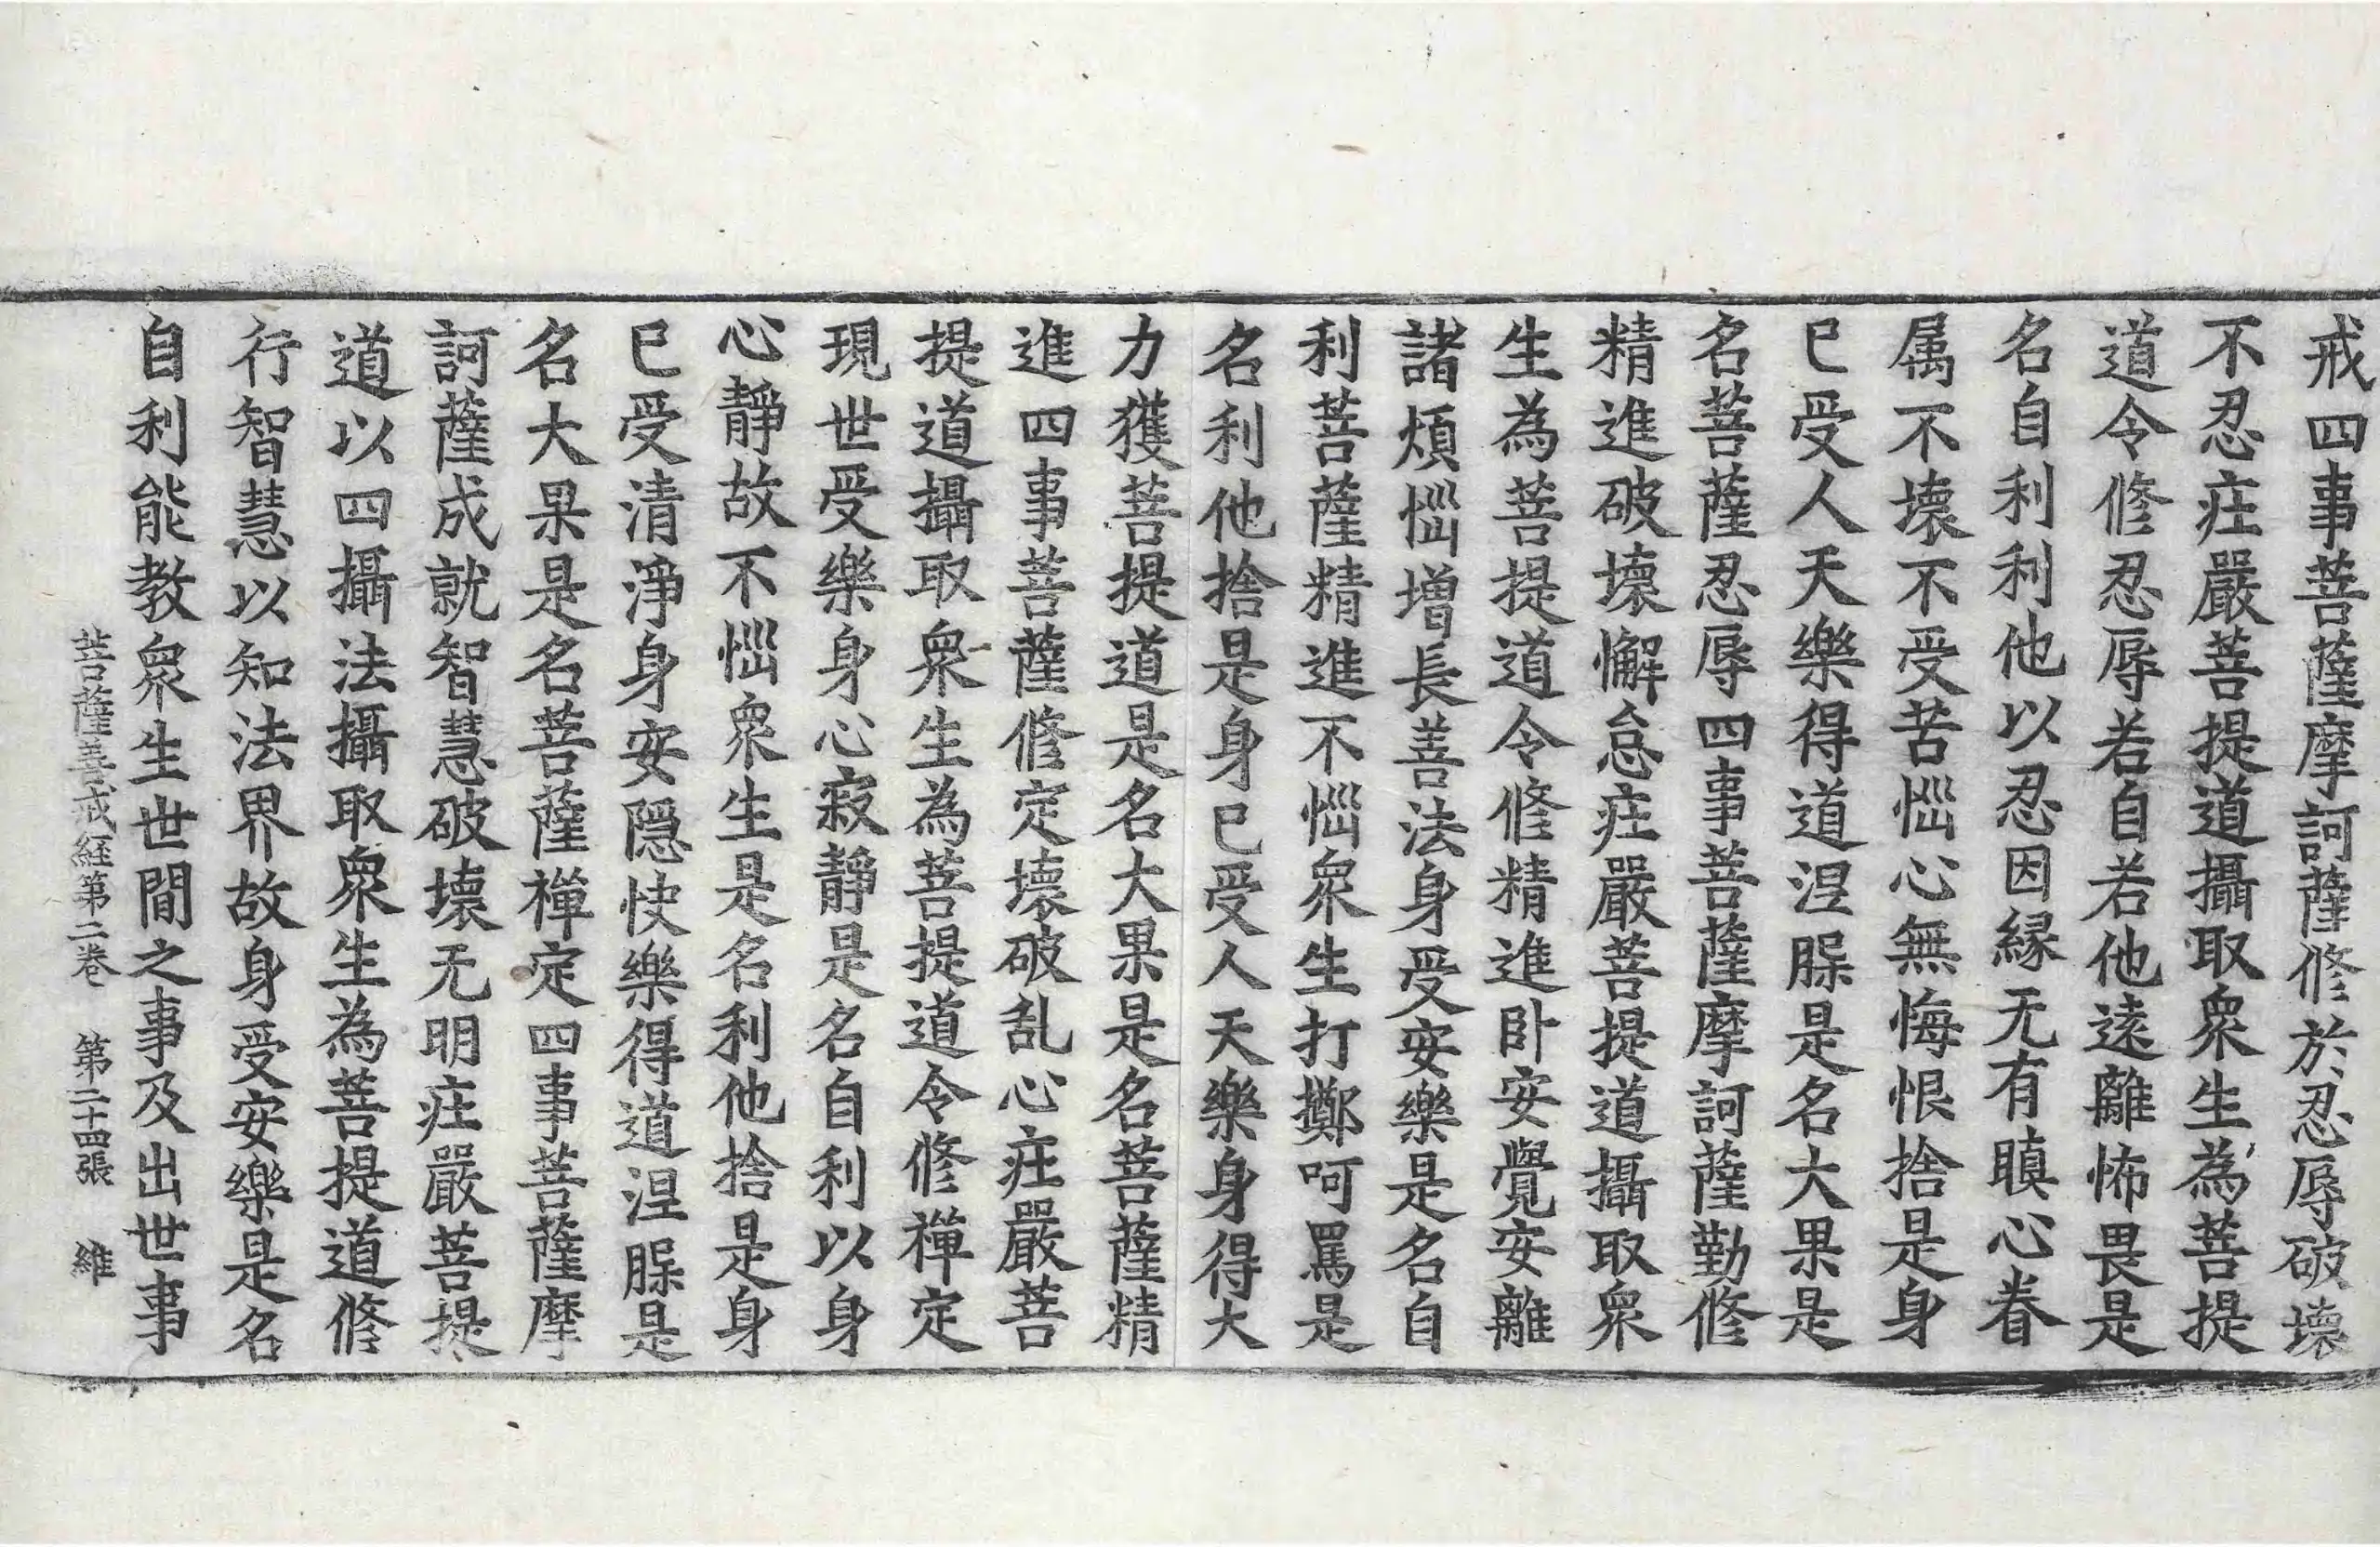 戒四事菩薩摩訶薩修於忍辱破壞
不忍疘嚴菩提道攝取衆生為菩提
道令修忍辱若自若他遠離怖畏是
名自利利他以忍因縁无有瞋心眷
属不壞不受苦惱心無悔恨捨是身
已受人天樂得道涅槃是名大果是
名菩薩忍辱四事菩薩摩訶薩勤修
精進破壞懈怠疘嚴菩提道攝取衆
生為菩提道令修精進卧安覺安離
諸煩惱增長善法身受安樂是名自
利菩薩精進不惱衆生打擲呵罵是
名利他捨是身已受人天樂身得大
力獲菩提道是名大果是名菩薩精
進四事菩薩修定壞破乱心疘嚴菩
提道攝取衆生為菩提道令修禪定
現世受樂身心寂靜是名自利以身
心靜故不惱衆生是名利他捨是身
已受清淨身安隱快樂得道涅槃是
名大果是名菩薩禪定四事菩薩摩
訶薩成就智慧破壞无明疘嚴菩提
道以四攝法攝取衆生為菩提道修
行智慧以知法界故身受安樂是名
自利能教衆生世間之事及出世事
菩薩善戒経第二卷 第二十四張 維